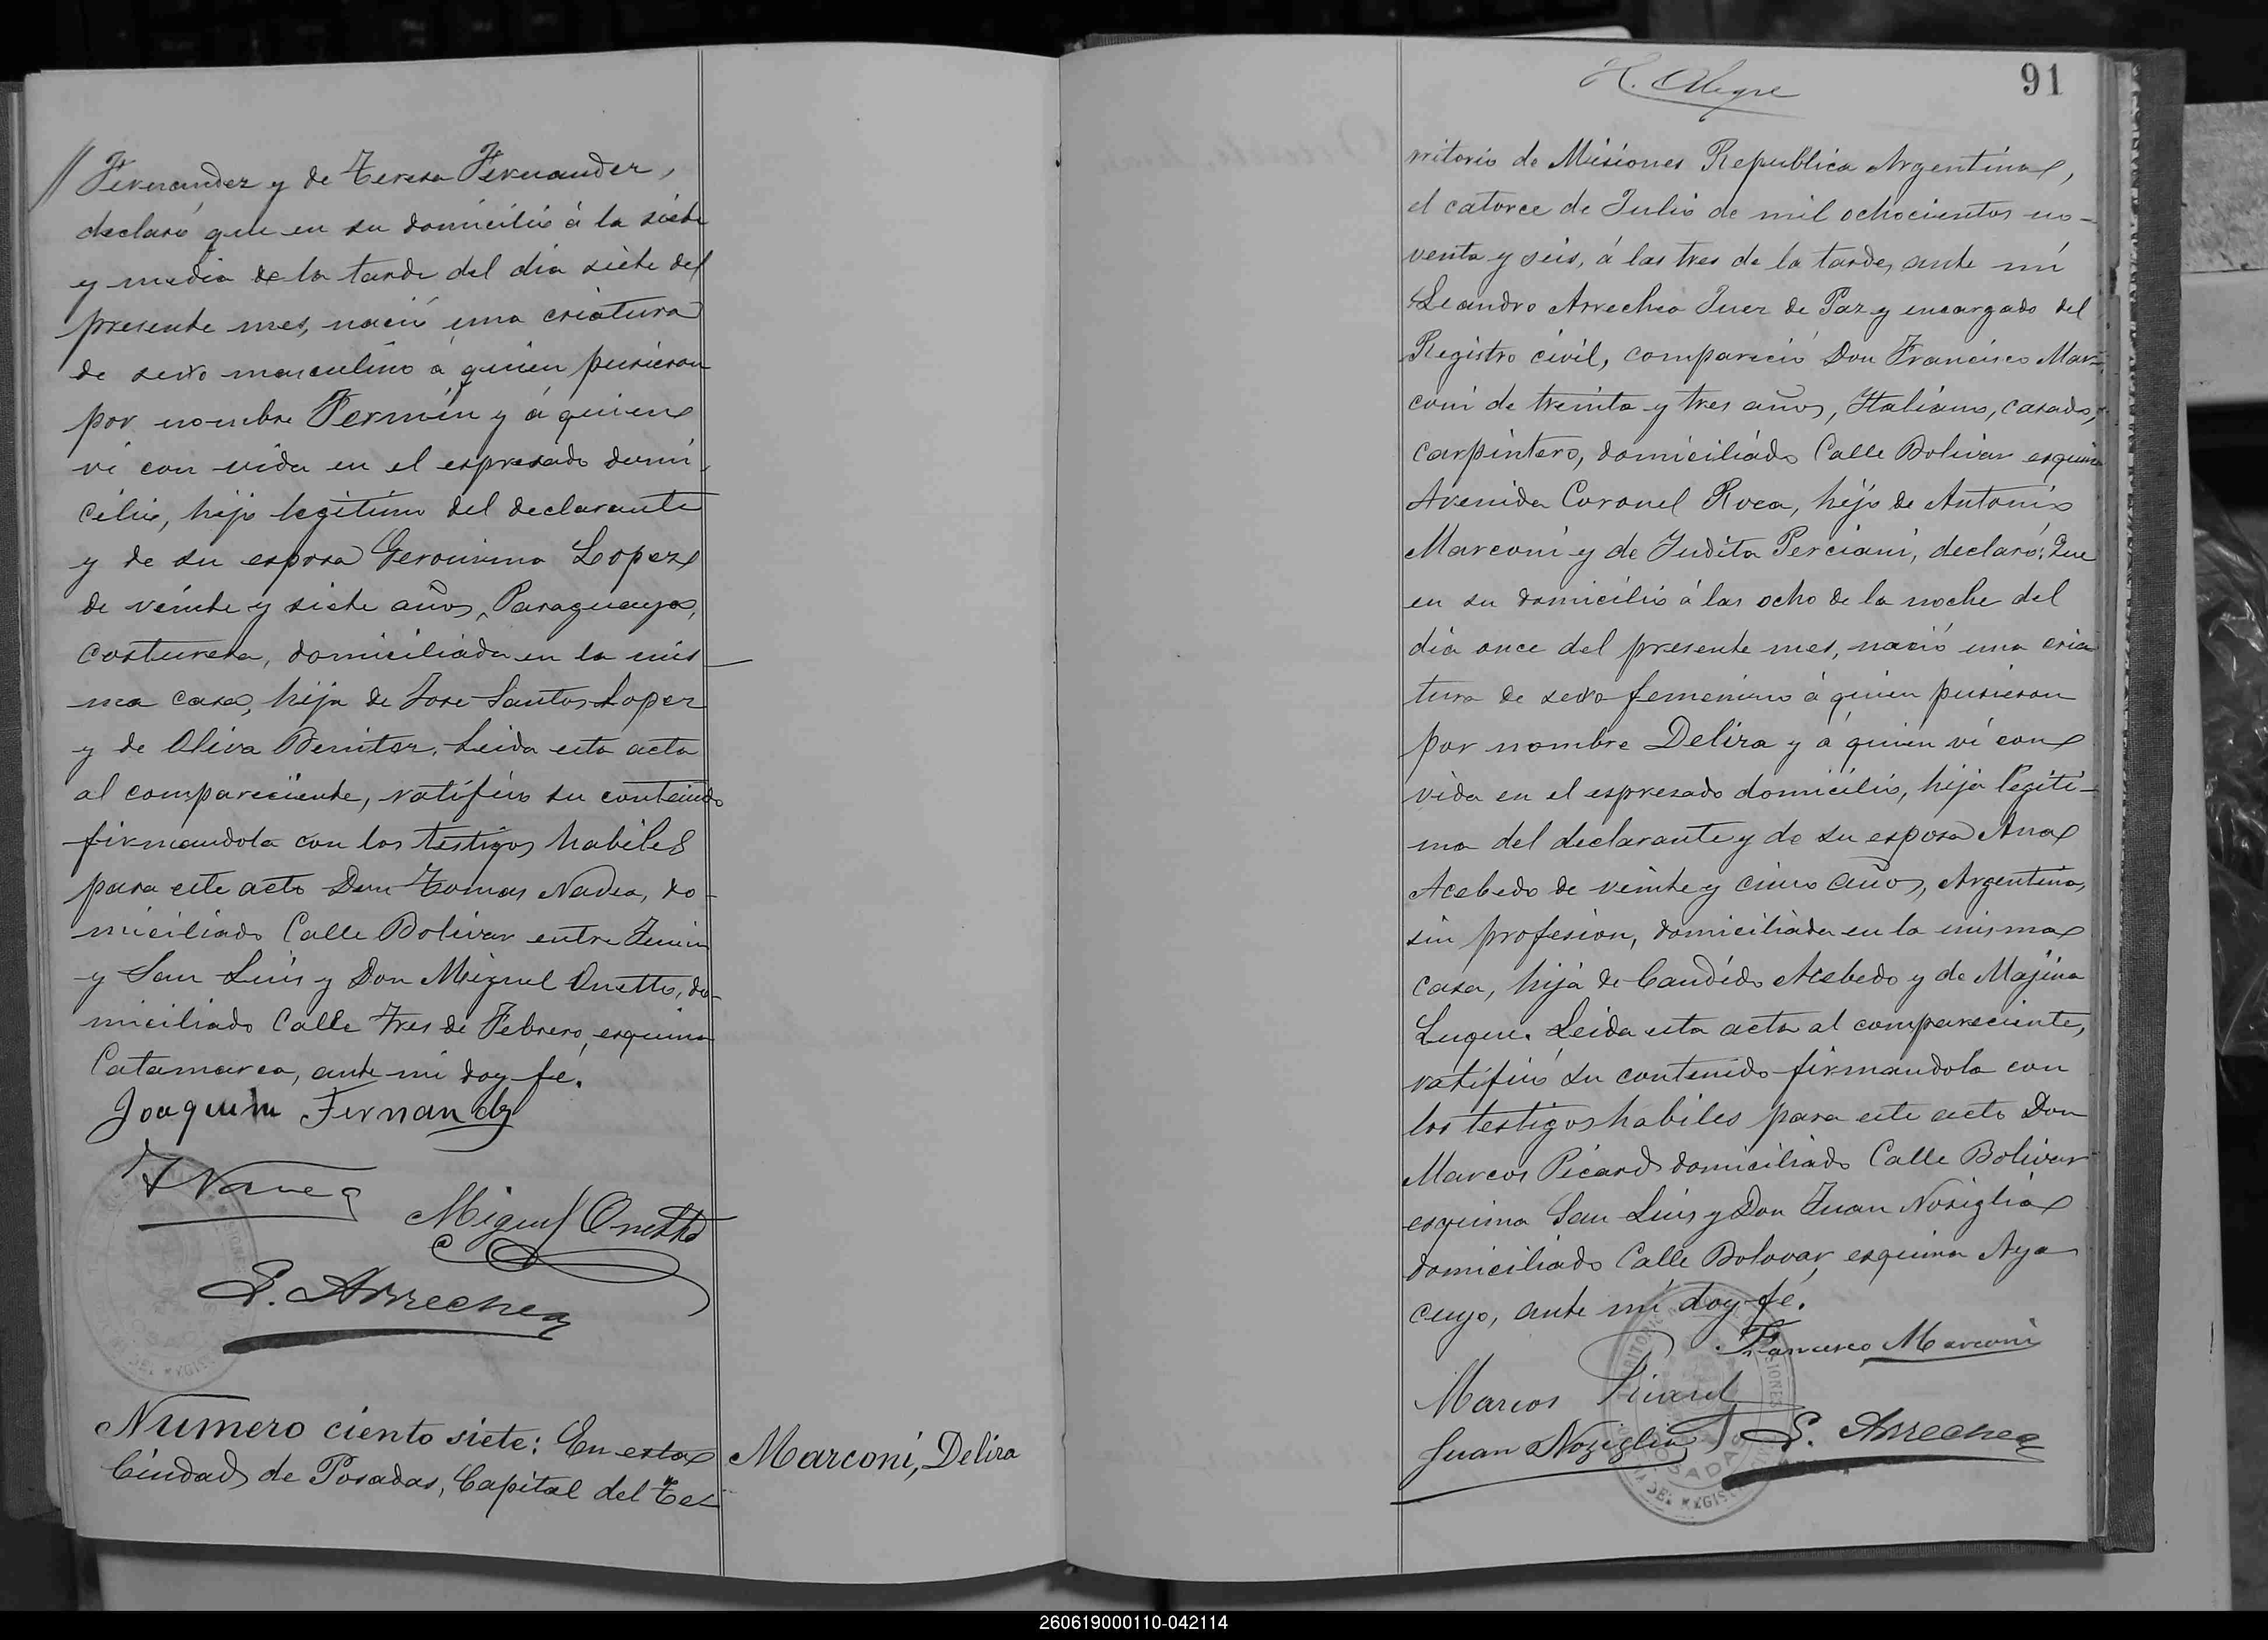 // Fernandez y de Teresa Fernandez,
declaró que en su domicilio á la siete
y media de la tarde del dia siete del
presente mes, nació una criatura
de sexo masculino á quien pusieron
por nombre Fermín y á quien
ví con vida en el espresado domi-
cilio, hijo legítimo del declarante
y de su esposa Geronima Lopez
de veinte y siete años, Paraguaya,
costurera, domiciliada en la mis
ma casa, hija de Jose Santos Lopez
y de Oliva Benitez. Leida esta acta
al compareciente, ratificó su contenido
firmandola con los testigos habiles
para este acto Don Tomas Navea, do-
miciliado Calle Bolivar entre Junin
y San Luis y Don Miguel Onetto, do-
miciliado Calle Tres de Febrero, esquina
Catamarca, ante mi doy fé.
Joaquin Fernandz
T Navea
Miguel Onetto
L. Arrechea
Numero ciento siete: En esta
Ciudad de Posadas, Capital del Te-
Marconi, Delira
H. Alegre
91
rritorio de Misiones Republica Argentina,
el catorce de Julio de mil ochocientos no-
venta y seis, á las tres de la tarde, ante mí
Leandro Arrechea Juez de Paz y encargado del
Registro civil, compareció Don Francisco Mar-
coni de treinta y tres años, Italiano, casado,
carpintero, domiciliado Calle Bolivar esquina
Avenida Coronel Roca, hijo de Antonio
Marconi y de Judita Perciani, declaró: Que
en su domicilio á las ocho de la noche del
dia once del presente mes, nació una cria
tura de sexo femenino á quien pusieron
por nombre Delira y á quien ví con
vida en el espresado domicilio, hija legíti-
ma del declarante y de su esposa Ana
Acebedo de veinte y cinco años, Argentina,
sin profesion, domiciliada en la misma
casa, hija de Candido Acebedo y de Majina
Luque. Leida esta acta al compareciente,
ratificó su contenido firmandola con
los testigos habiles para este acto Don
Marcos Picard domiciliado Calle Bolivar
esquina San Luis y Don Juan Nosiglia
domiciliado Calle Bolovar esquina Aya
cuyo, ante mí doy fé.
Francisco Marconi
Marcos Picard
Juan Noziglia
L. Arrechea
POSADAS
260619000110-042114